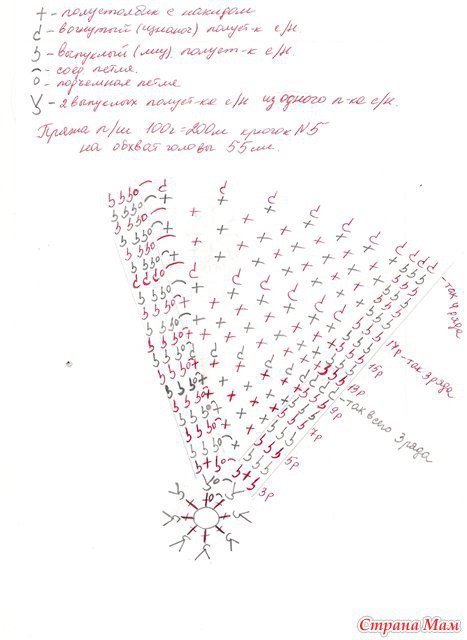 + - полустолбик с накидом
- вогнутый (изнаноч) полуст-к с/н.
- выпуклый (лиц) полуст-к с/н.
- соед. петля.
o - подъемная петля
- 2 выпуклых полуст-ка с/н из одного п-ка с/н.
Пряжа п/ш 100г=200м крючок №5
на обхват головы 55 см.
- так 4 ряда
17р - так 3 ряда
15р
13р
- так всего 3 ряда
9р
7р
5р
3р
Страна Мам